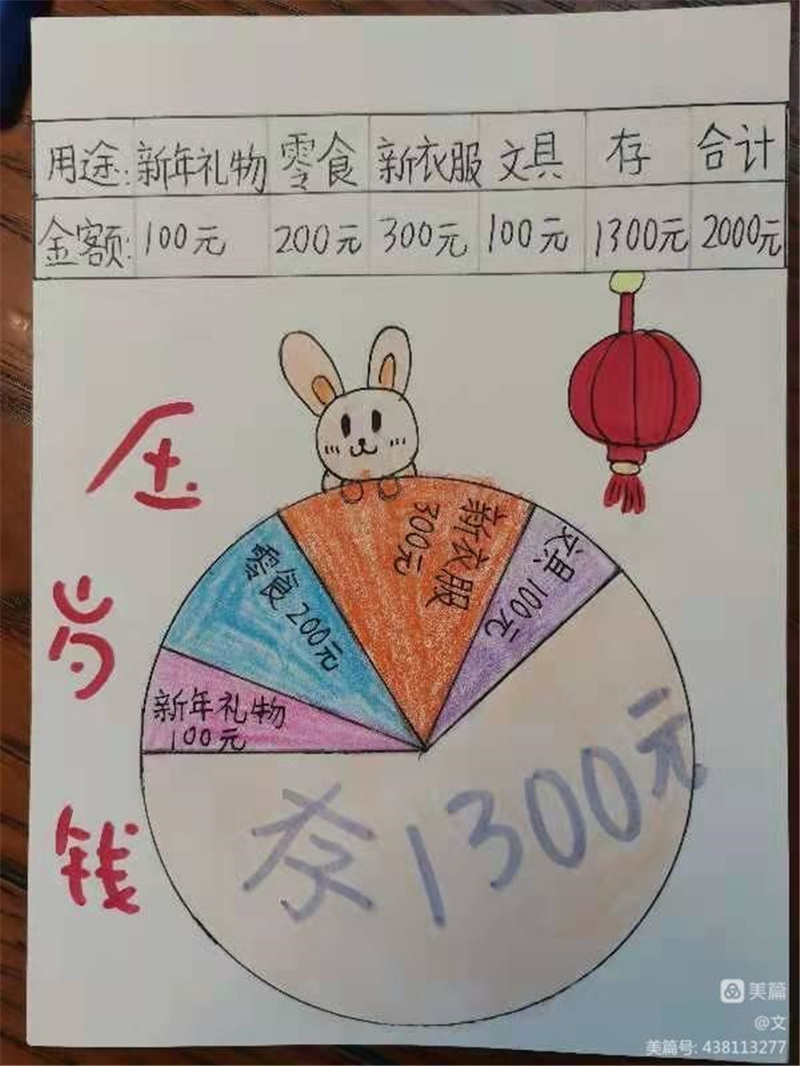 用途: 新年礼物 零食 新衣服 文具 存 合计
金额: 100元 200元 300元 100元 1300元 2000元
压
岁
钱
新年礼物
100元
零食200元
新衣服
300元
文具100元
存1300元
美篇
@文
美篇号: 438113277